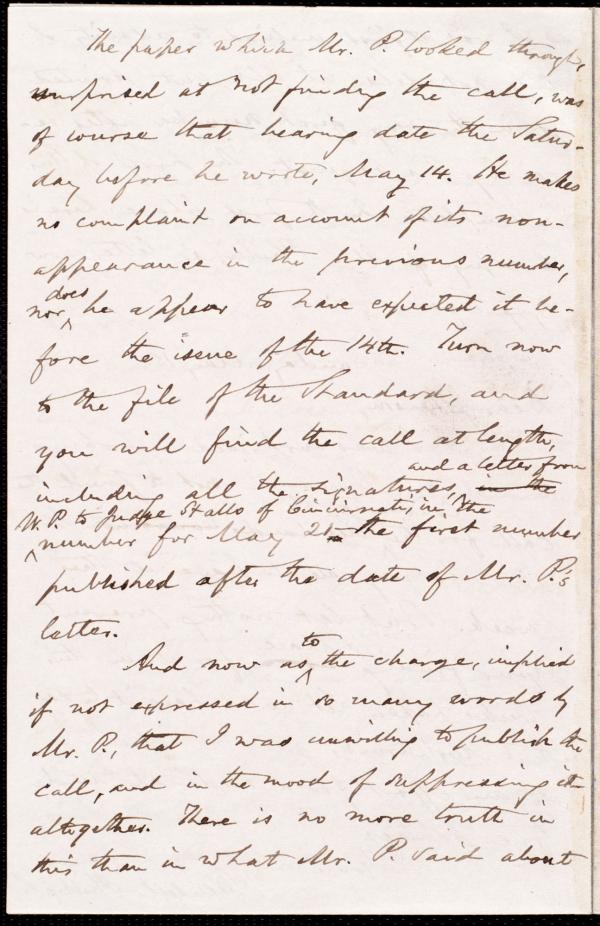 The paper which Mr. P. looked through,
surprised at not finding the call, was
of course that bearing date the Satur-
day before he wrote, May 14. He makes
no complaint on account of its non-
appearance in the previous number,
does
nor he appear to have expected it be-
fore the issue of the 14th. Turn now
to the file of the Standard, and
you will find the call at length,
and a letter from
including all the signatures, in the
W. P. to Judge Stallo of Cincinnati, in the
number for May 21 - the first number
published after the date of Mr. P.'s
letter.
to
And now as the charge, implied
if not expressed in so many words by
Mr. P., that I was unwilling to publish the
call, and in the mood of suppressing it
altogether. There is no more truth in
this than in what Mr. P. said about